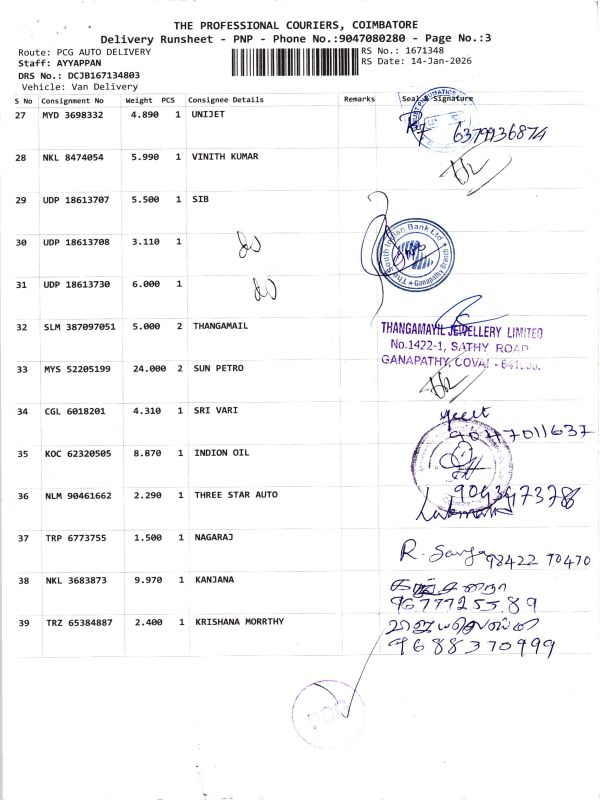 THE PROFESSIONAL COURIERS, COIMBATORE
Delivery Runsheet - PNP - Phone No.:9047080280 - Page No.:3
Route: PCG AUTO DELIVERY
Staff: AYYAPPAN
DRS No.: DCJB167134803
Vehicle: Van Delivery
RS No.: 1671348
RS Date: 14-Jan-2026
S No Consignment No Weight PCS Consignee Details Remarks Seal & Signature
27 MYD 3698332 4.890 1 UNIJET
6379936874
28 NKL 8474054 5.990 1 VINITH KUMAR
29 UDP 18613707 5.500 1 SIB
30 UDP 18613708 3.110 1
The South Indian Bank Ltd. Ganapathy Branch
31 UDP 18613730 6.000 1
32 SLM 387097051 5.000 2 THANGAMAIL
THANGAMAYIL JEWELLERY LIMITED
No.1422-1, SATHY ROAD
GANAPATHY, COVAI -
33 MYS 52205199 24.000 2 SUN PETRO
34 CGL 6018201 4.310 1 SRI VARI
9047011637
35 KOC 62320505 8.870 1 INDION OIL
36 NLM 90461662 2.290 1 THREE STAR AUTO
37 TRP 6773755 1.500 1 NAGARAJ
R. 98422 70470
38 NKL 3683873 9.970 1 KANJANA
9677725589
39 TRZ 65384887 2.400 1 KRISHANA MORRTHY
9688370999
PCG